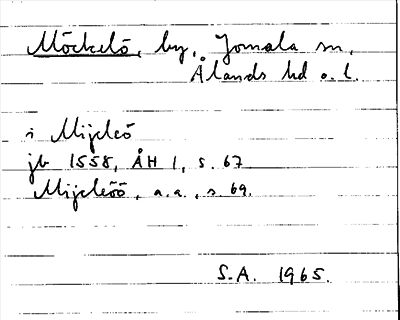 Möckelö, by, Jomala sn,
Ålands hd o. l.
i Mijcleö
jb 1558, ÅH 1, s. 67
Mijcleöö, a.a., s. 69.
S.A. 1965.